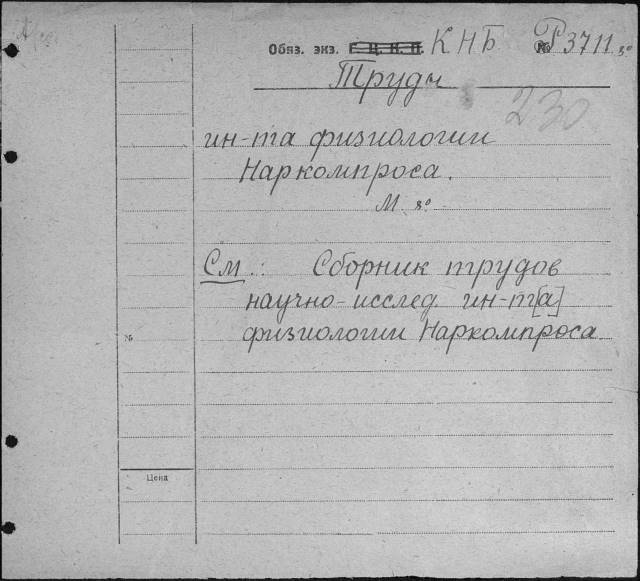 Обяз. экз. Г. Ц. К. П. КНБ № Р3711 8º
Труды
230
ин-та физиологии
Наркомпроса.
М 8º
См.: Сборник трудов
научно-исслед. ин-т[а]
физиологии Наркомпроса.
№
Цена